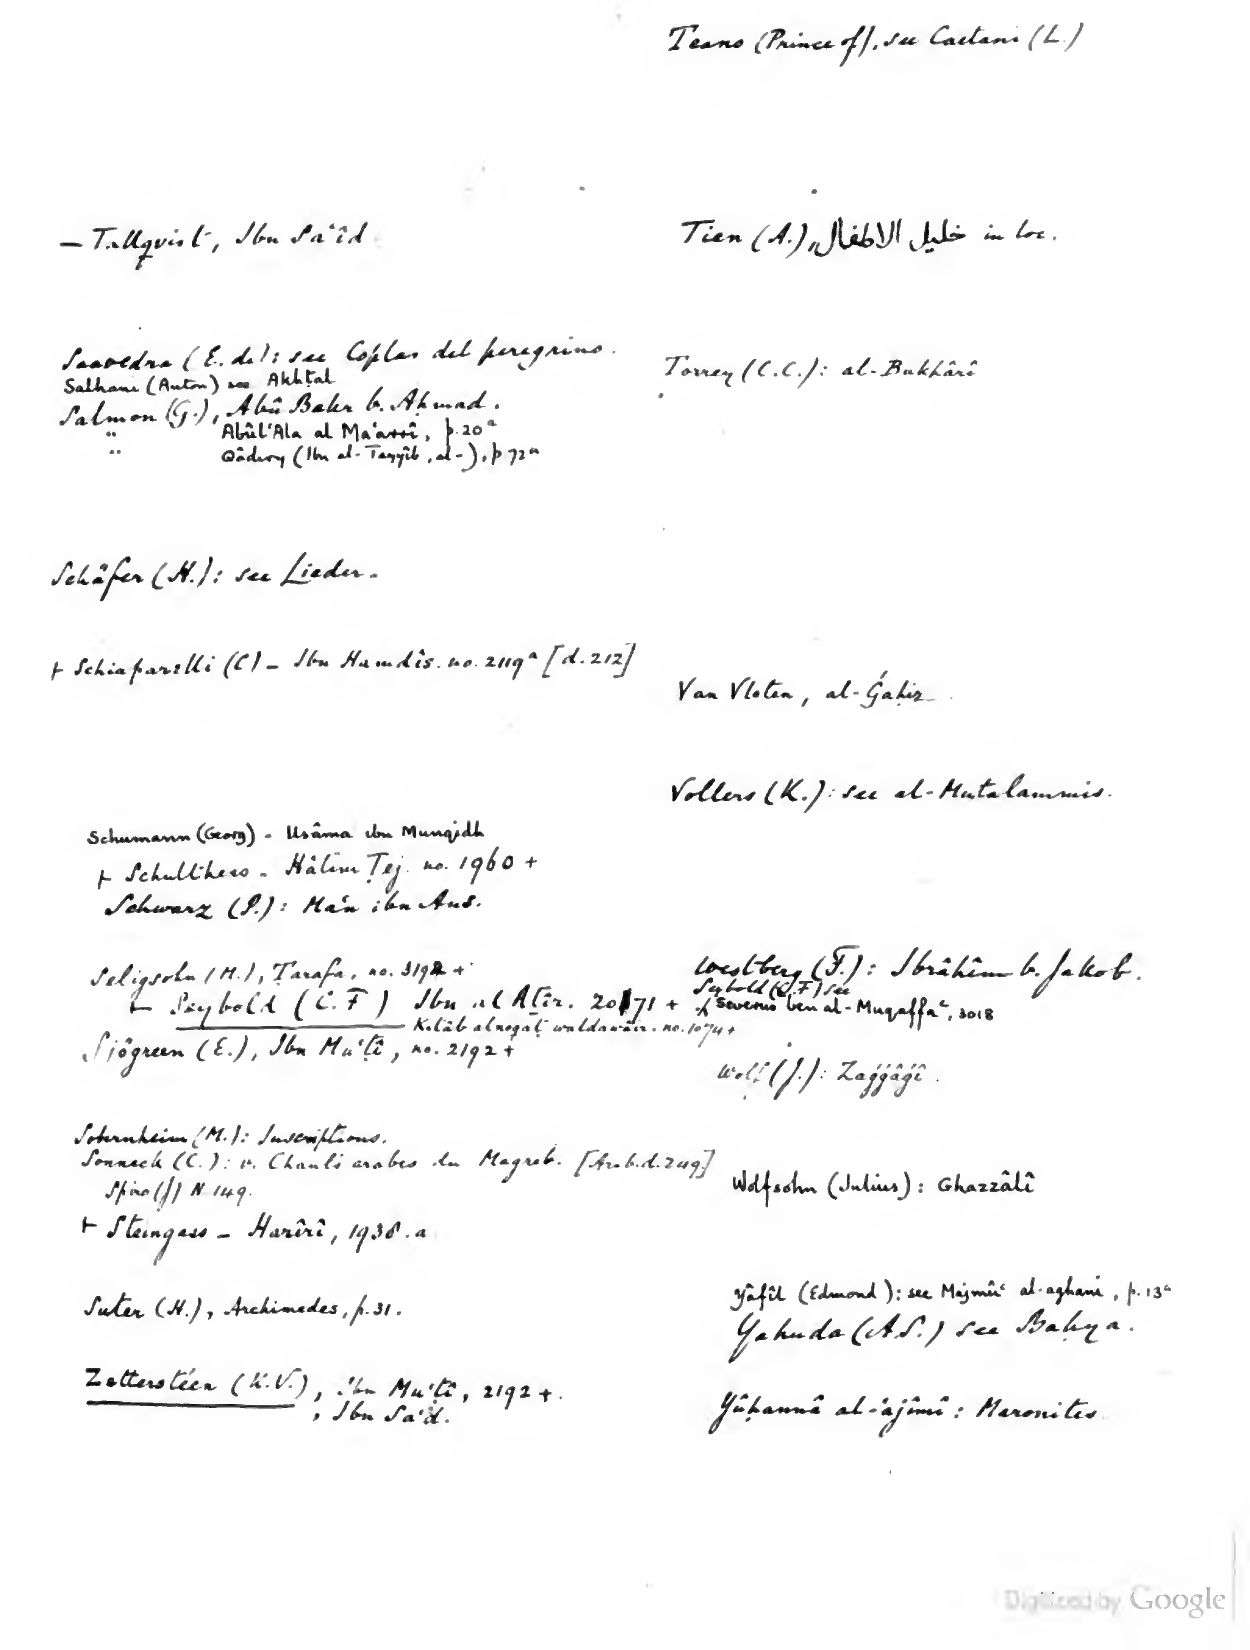 — Tallqvist, Ibn Sa'îd
Saavedra (E. de): see Coplas del peregrino.
Salhani (Anton) see Akhṭal
Salmon (G.), Abû Bakr b. Aḥmad.
" Abûl'Ala al Ma'arrî, p. 20ª
" Qâdiry (Ibn al-Ṭayyib, al-), p 72ª
Schäfer (H.): see Lieder.
+ Schiaparelli (C) – Ibn Hamdîs. no. 2119ª [d. 212]
Schumann (Georg) - Usâma ibn Munqidh
+ Schulthess - Hâtim Ṭej. no. 1960 +
Schwarz (P.): Ma'n ibn Aus.
Seligsohn (M.), Ṭarafa, no. 3192 +
+ Seybold (C. F) Ibn al Aṯîr. 20171 +
Kitâb alnoqaṭ waldawâir. no. 1074 +
Sjögreen (E.), Ibn Mu'ṭî, no. 2192 +
Sobernheim (M.): Inscriptions.
Sonneck (C.): v. Chants arabes du Magreb. [Arab.d.249]
Spiro (J) N. 149.
+ Steingass – Harîrî, 1938.a
Suter (H.), Archimedes, p. 31.
Zetterstéen (K.V.), Ibn Mu'ṭî, 2192 +.
, Ibn Sa'd.
Teano (Prince of), see Caetani (L.)
Tien (A.), خليل الاطفال in loc.
Torrey (C.C.): al-Bukhârî
Van Vloten, al-Ǵaḥiz
Vollers (K.): see al-Mutalammis.
Westberg (F.): Ibrâhîm b. Jakob.
Seybold (C.F) see
+ Severus ben al-Muqaffaʿ, 3018
Wolf (J.): Zaǵǵâǵî.
Wolfsohn (Julius): Ghazzâlî
Yâfîl (Edmond): see Majmûʿ al-aghani, p. 13ª
Yahuda (A.S.) see Baḥya.
Yûḥannâ al-'ajîmî: Maronites
Digitized by Google